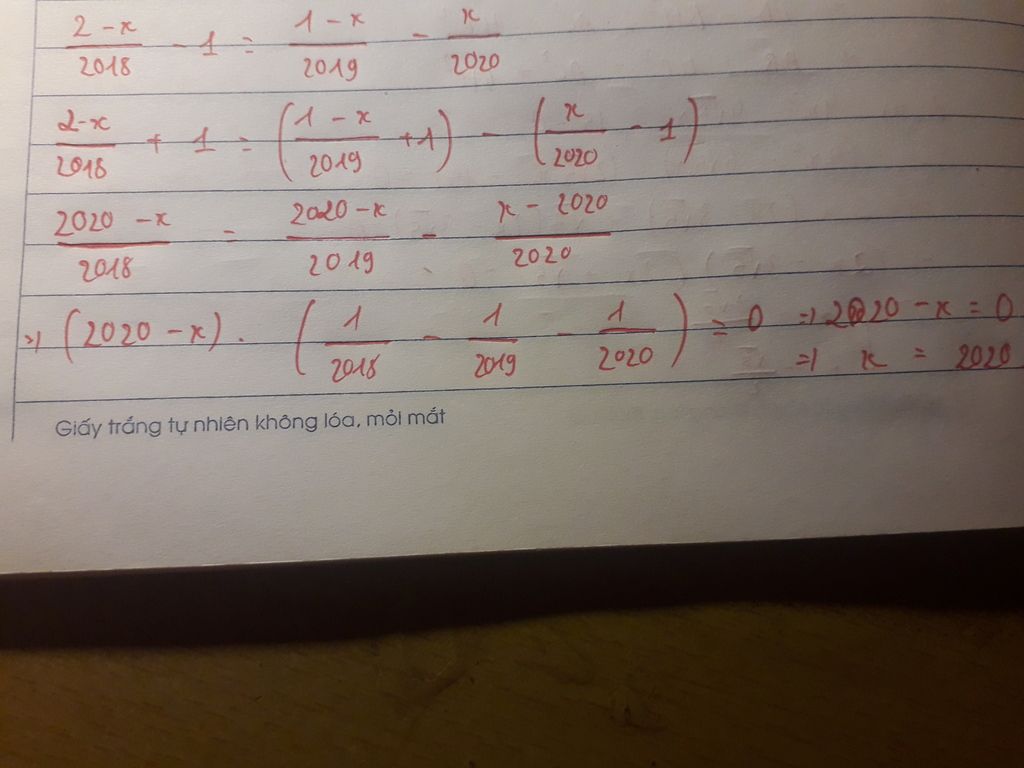 2 - x / 2018 - 1 = 1 - x / 2019 - x / 2020
2 - x / 2018 + 1 = (1 - x / 2019 + 1) - (x / 2020 - 1)
2020 - x / 2018 = 2020 - x / 2019 - x - 2020 / 2020
=> (2020 - x) . (1 / 2018 - 1 / 2019 - 1 / 2020) = 0 => 2020 - x = 0
=> x = 2020
Giấy trắng tự nhiên không lóa, mỏi mắt